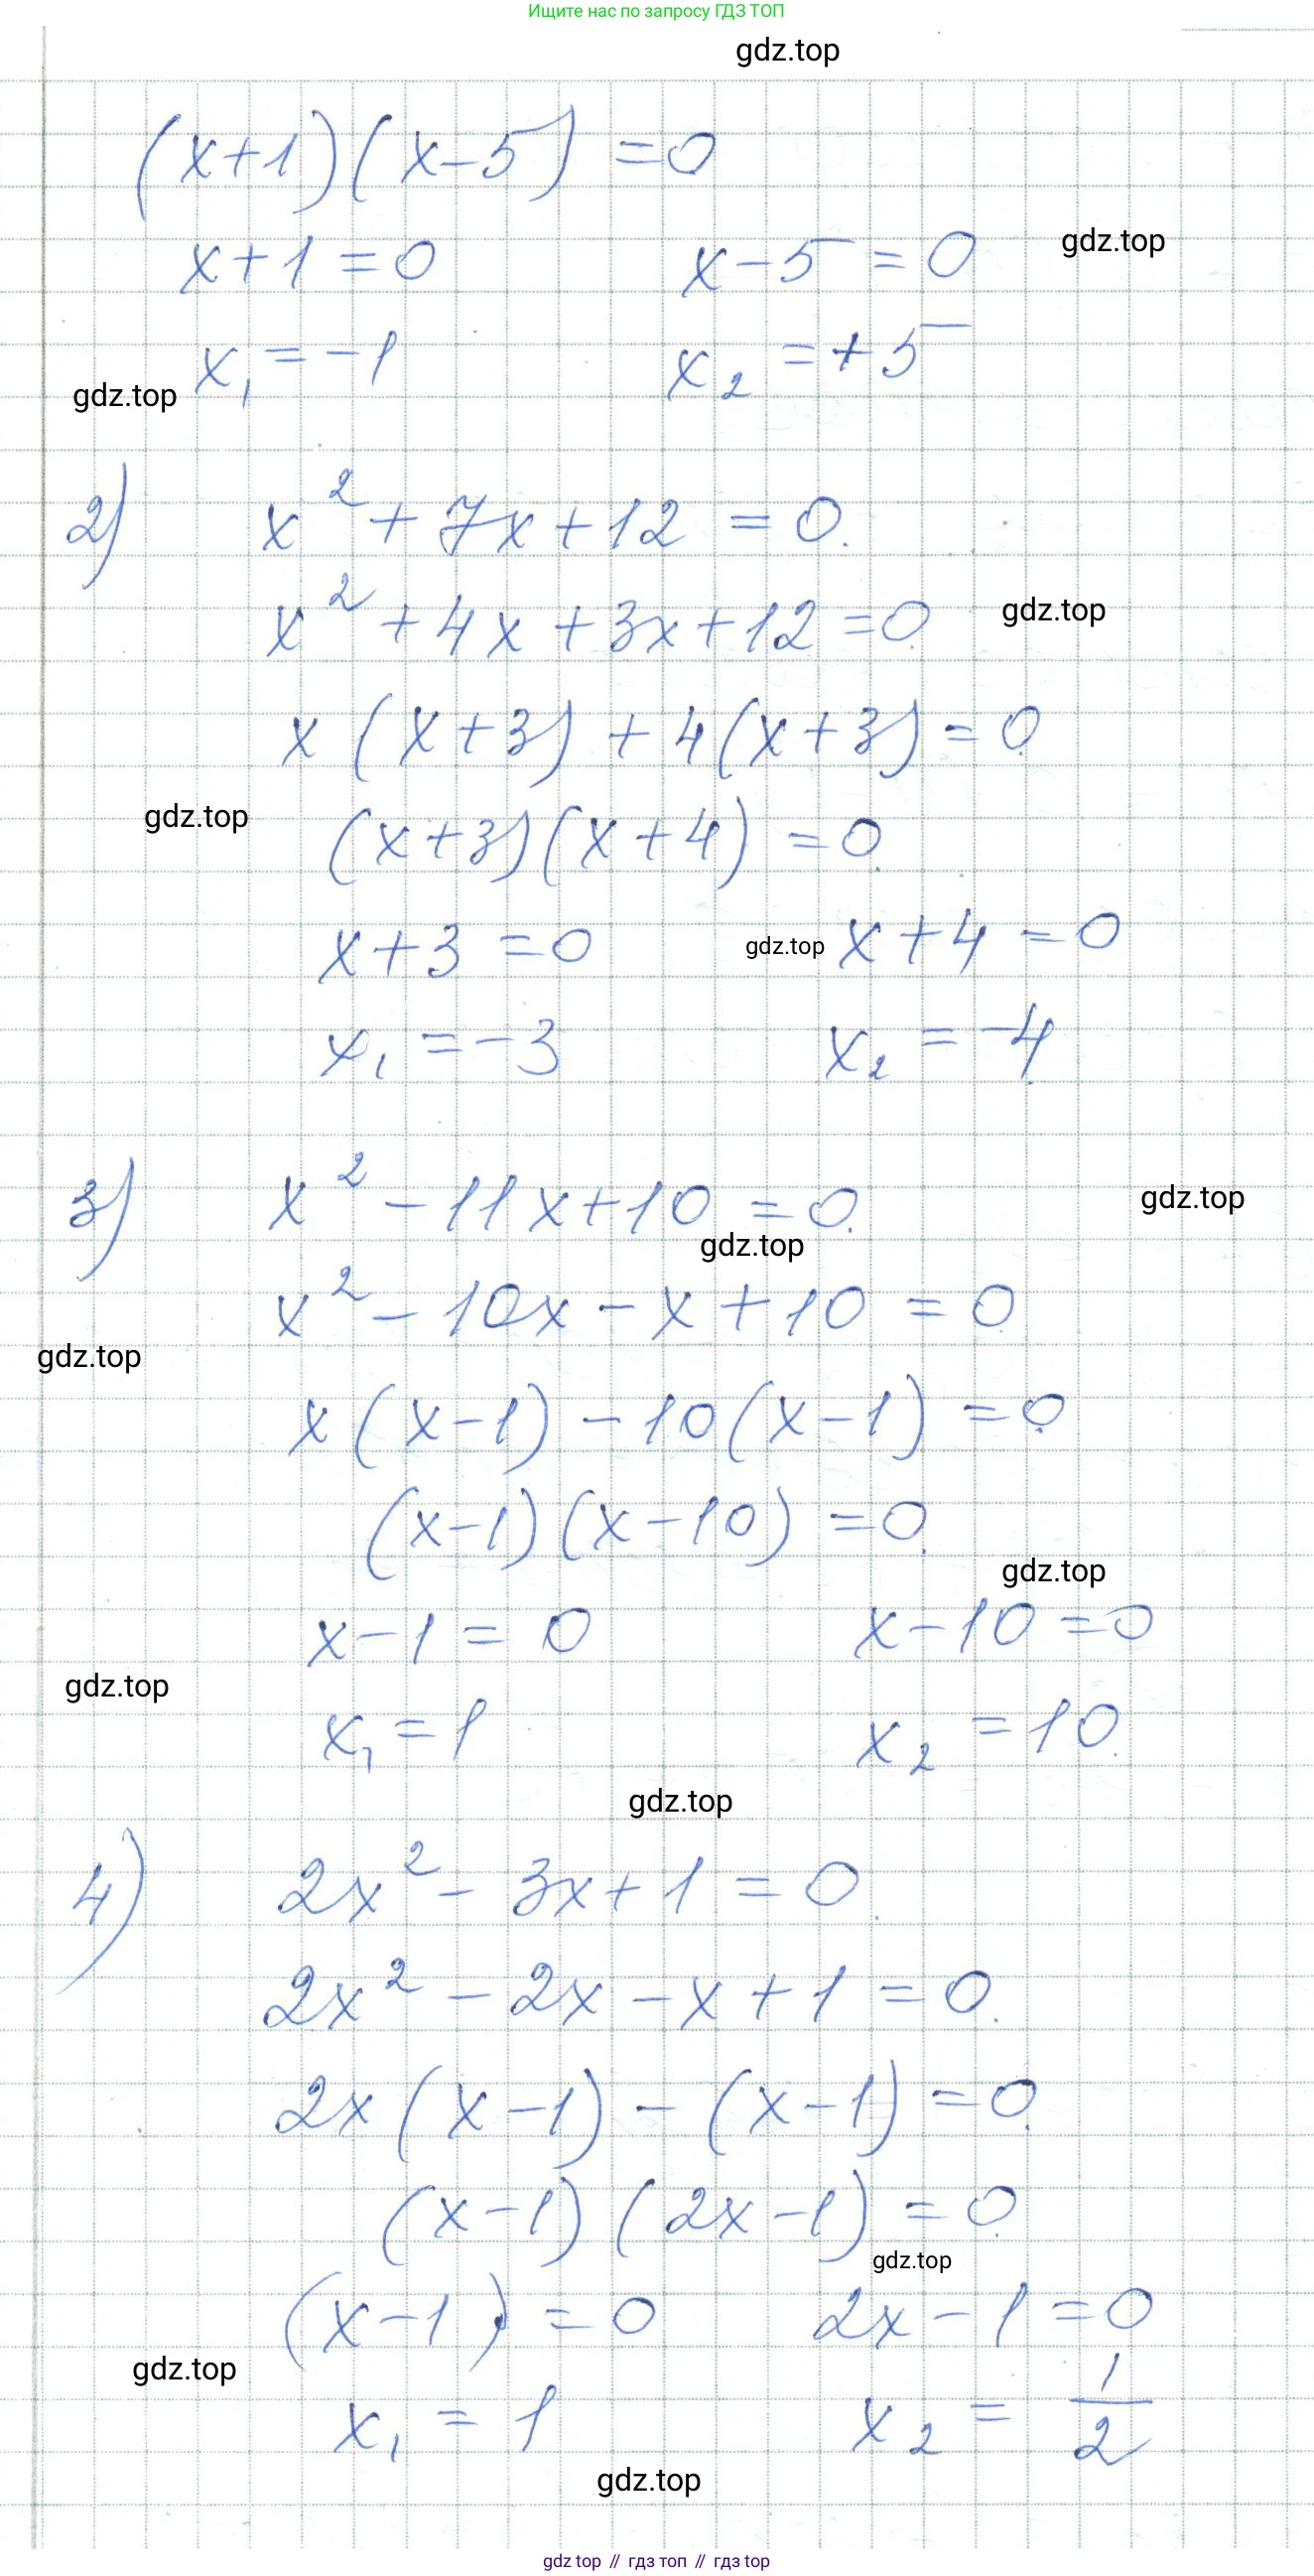 Ищите нас по запросу ГДЗ ТОП
gdz.top
(x+1)(x-5) =0
x+1=0 x-5=0
gdz.top
x₁=-1 x₂=+5
gdz.top
2) x²+7x+12=0.
x²+4x+3x+12=0
gdz.top
x(x+3)+4(x+3)=0
gdz.top
(x+3)(x+4)=0.
x+3=0 gdz.top x+4=0
x₁=-3 x₂=-4
3) x²-11x+10=0.
gdz.top
gdz.top
x²-10x-x+10=0
gdz.top
x(x-1)-10(x-1)=0
(x-1)(x-10)=0.
gdz.top
x-1=0 x-10=0
gdz.top
x₁=1 x₂=10.
gdz.top
4) 2x²-3x+1=0.
2x²-2x-x+1=0.
2x(x-1)-(x-1)=0.
(x-1)(2x-1)=0
gdz.top
(x-1)=0 2x-1=0
gdz.top
x₁=1 x₂=1/2
gdz.top
gdz top // гдз топ // гдз top